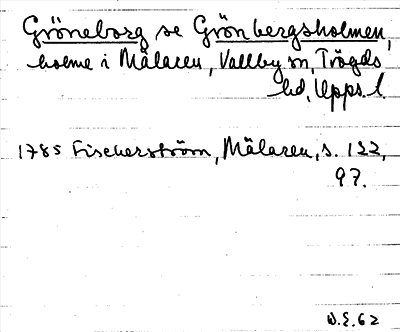 Gröneborg se Grönbergsholmen,
holme i Mälaren, Vallby sn, Trögds
hd, Upps. l.
1785 Fischerström, Mälaren, s. 132,
97.
W.E. 62